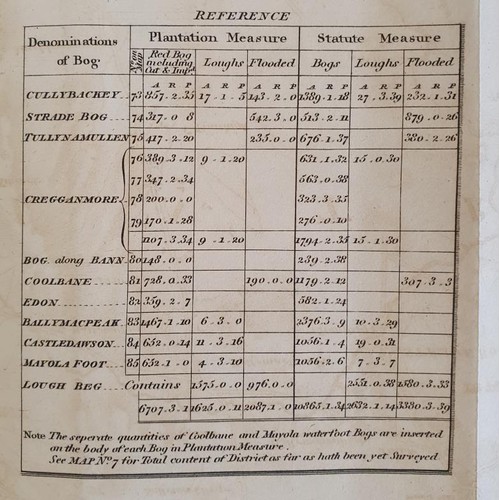 REFERENCE
Denominations of Bog. No. on Map Plantation Measure Statute Measure
Red Bog including Cut & Imp.d Loughs Flooded Bogs Loughs Flooded
A R P A R P A R P A R P A R P A R P
CULLYBACKEY 73 857.2.35 17.1.5 143.2.0 1389.1.18 27.3.39 232.1.31
STRADE BOG 74 317.0 8 542.3.0 513.2.11 879.0.26
TULLYNAMULLEN 75 417.2.20 235.0.0 676.1.37 380.2.26
76 389.3.12 9.1.20 631.1.32 15.0.30
77 347.2.34 563.0.38
CREGGANMORE 78 200.0.0 323.3.35
79 170.1.28 276.0.10
1107.3.34 9.1.20 1794.2.35 15.1.30
BOG along BANN 80 148.0.0 239.2.38
COOLBANE 81 728.0.33 190.0.0 1179.2.12 307.3.3
EDON 82 359.2.7 582.1.24
BALLYMACPEAK 83 1467.1.10 6.3.0 2376.3.9 10.3.29
CASTLEDAWSON 84 652.0.14 11.3.16 1056.1.4 19.0.31
MAYOLA FOOT 85 652.1.0 4.3.10 1056.2.6 7.3.7
LOUGH BEG Contains 1575.0.0 976.0.0 2551.0.38 1580.3.33
6707.3.1 1625.0.11 2087.1.0 10865.1.34 2632.1.14 3380.3.39
Note The seperate quantities of Coolbane and Mayola waterfoot Bogs are inserted
on the body of each Bog in Plantation Measure.
See MAP No. 7 for Total content of District as far as hath been yet Surveyed